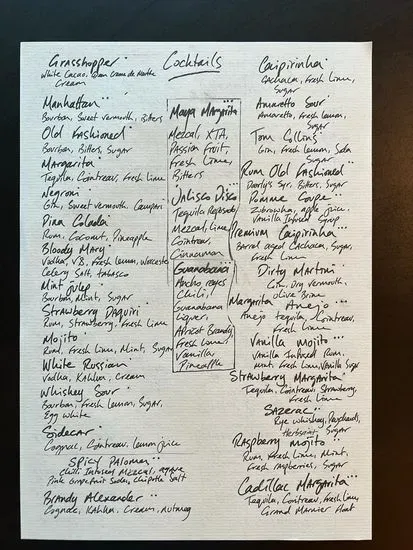 Cocktails
Grasshopper
White Cacao, Green Creme de Menthe
Cream
Manhattan
Bourbon, Sweet Vermouth, Bitters
Old Fashioned
Bourbon, Bitters, Sugar
Margarita
Tequila, Cointreau, Fresh Lime
Negroni
Gin, Sweet Vermouth, Campari
Pina Colada
Rum, Coconut, Pineapple
Bloody Mary
Vodka, VB, Fresh Lemon, Worceste
Celery Salt, Tabasco
Mint Julep
Bourbon, Mint, Sugar
Strawberry Daquiri
Rum, Strawberry, Fresh Lime
Mojito
Rum, Fresh Lime, Mint, Sugar
White Russian
Vodka, Kahlua, Cream
Whiskey Sour
Bourbon, Fresh Lemon, Sugar,
Egg White
Sidecar
Cognac, Cointreau, Lemon Juice
Spicy Paloma
Chilli Infused Mezcal, Agave
Pink Grapefruit Soda, Chipotle Salt
Brandy Alexander
Cognac, Kahlua, Cream, Nutmeg
Maya Margarita
Mezcal, XTA,
Passion Fruit,
Fresh Lime,
Bitters
Jalisco Disco
Tequila Reposado,
Mezcal, Lime
Cointreau,
Cinnamon
Guanabana
Ancho Reyes
Chili,
Guanabana
Liquer,
Apricot Brandy
Fresh Lime,
Vanilla
Pineapple
Caipirinha
Cachaca, Fresh Lime,
Sugar
Amaretto Sour
Amaretto, Fresh Lemon,
Sugar
Tom Collins
Gin, Fresh Lemon, Soda
Sugar
Rum Old Fashioned
Syr, Bitters, Sugar
Pomme Coupe
Zubrowka, Apple Juice,
Vanilla Infused Syrup
Premium Caipirinha
Barrel Aged Cachaca, Sugar,
Fresh Lime
Dirty Martini
Gin, Dry Vermouth,
Olive Brine
Margarita Anejo
Anejo Tequila, Cointreau,
Fresh Lime
Vanilla Mojito
Vanilla Infused Rum,
Mint, Fresh Lime, Vanilla Sugar
Strawberry Margarita
Tequila, Cointreau, Strawberry,
Fresh Lime
Sazerac
Rye Whiskey, Peychauds,
Herbsaint, Sugar
Raspberry Mojito
Rum, Fresh Lime, Mint,
Fresh Raspberries, Sugar
Cadillac Margarita
Tequila, Cointreau, Fresh Lime,
Grand Marnier Float